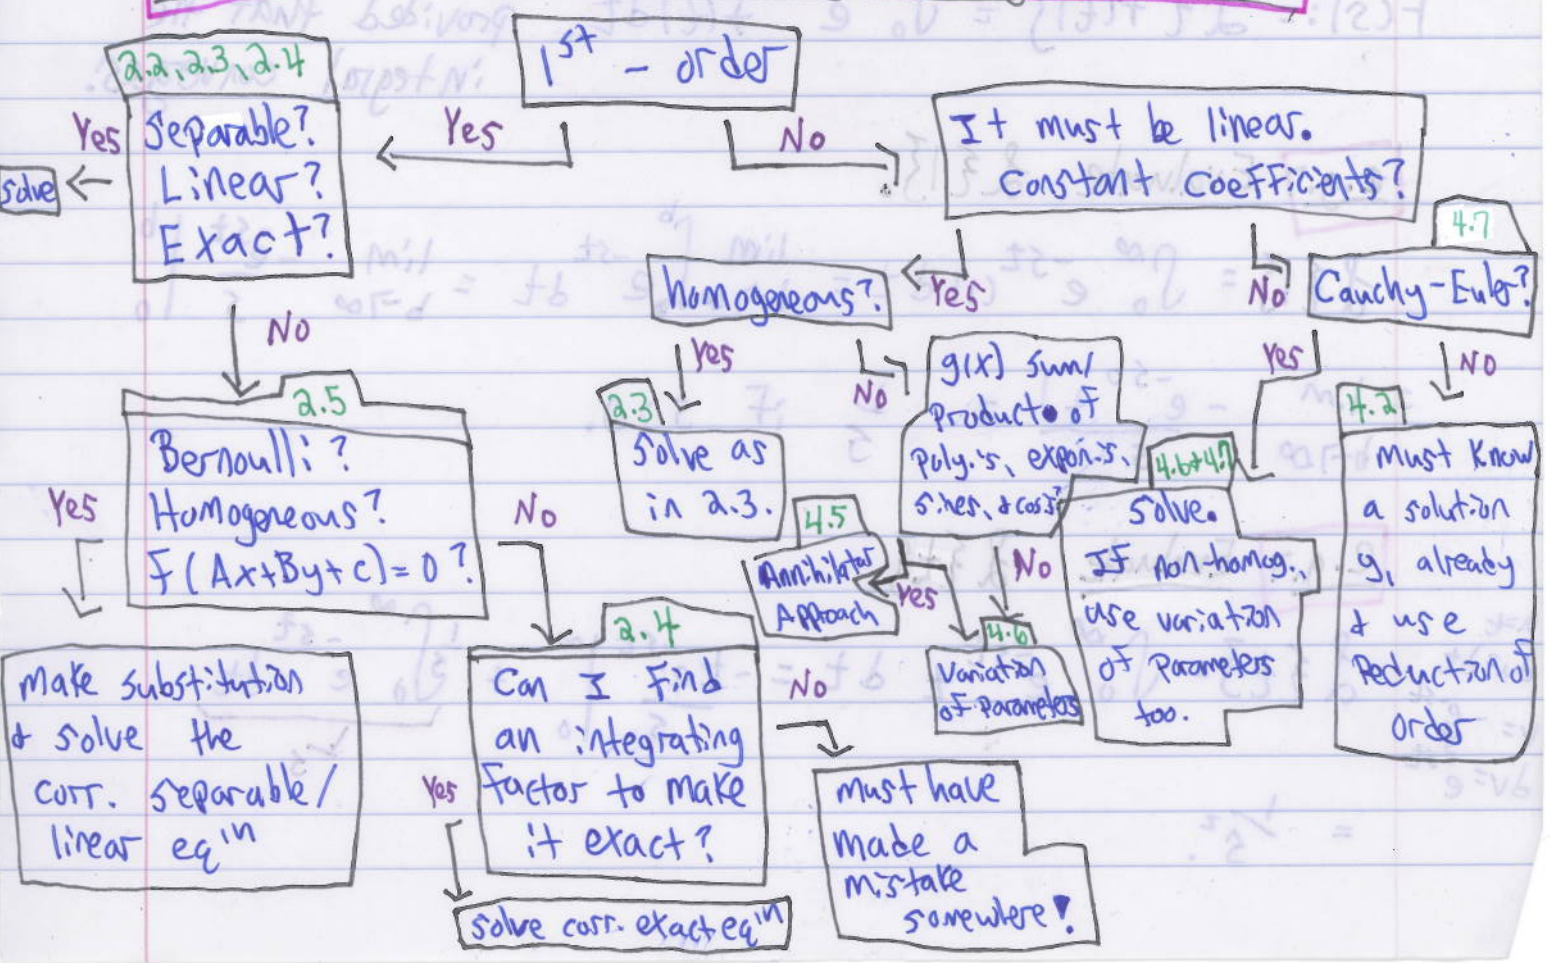 1st - order
2.2, 2.3, 2.4
Separable?
Linear?
Exact?
Yes
Yes
solve
No
It must be linear.
Constant coefficients?
No
2.5
Bernoulli?
Homogeneous?
F(Ax+By+c)=0?
Yes
No
make substitution
& solve the
corr. separable/
linear eq'n
2.4
Can I find
an integrating
factor to make
it exact?
Yes
No
solve corr. exact eq'n
must have
made a
mistake
somewhere!
Yes
No
homogeneous?
Yes
No
2.3
Solve as
in 2.3.
g(x) sum/
product of
poly.'s, expon.'s,
sines, & cos's?
Yes
No
4.5
Annihilator
Approach
4.6
Variation
of Parameters
4.7
Cauchy-Euler?
Yes
No
4.6+4.7
Solve.
If non-homog.,
use variation
of parameters
too.
4.2
must know
a solution
y, already
& use
Reduction of
order